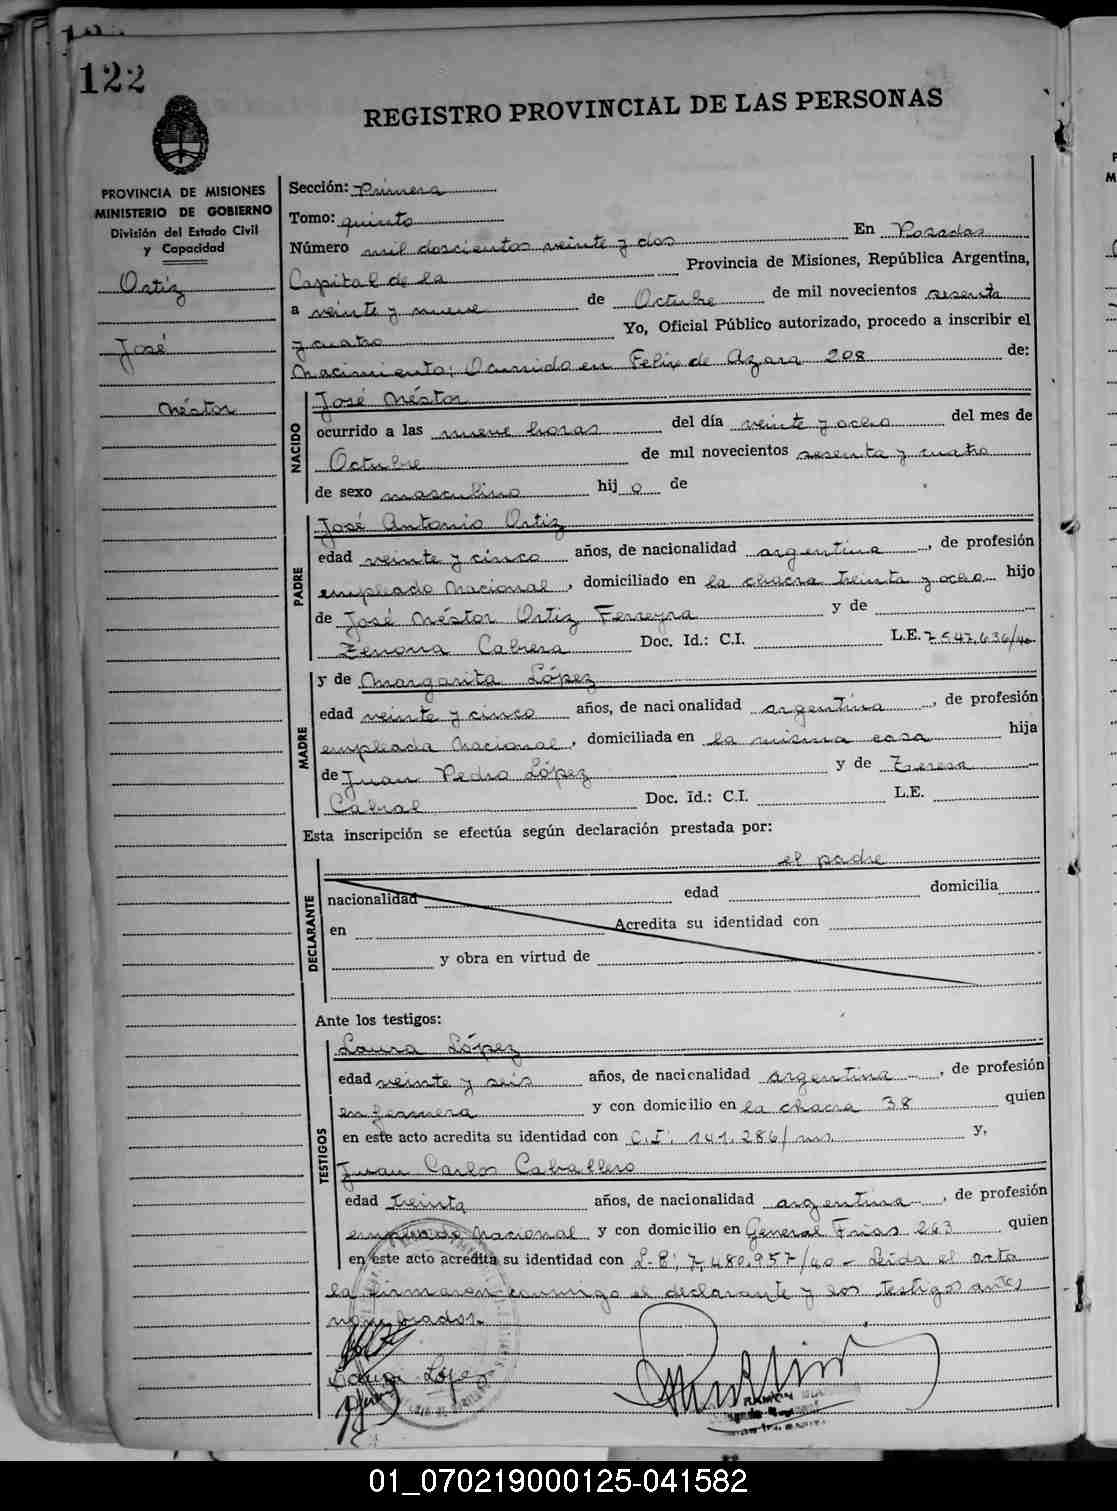 122
REGISTRO PROVINCIAL DE LAS PERSONAS
PROVINCIA DE MISIONES
MINISTERIO DE GOBIERNO
División del Estado Civil
y Capacidad
Ortiz
José
Néstor
Sección: Primera
Tomo: quinto
Número mil doscientos veinte y dos En Posadas
Capital de la Provincia de Misiones, República Argentina,
a veinte y nueve de Octubre de mil novecientos sesenta
y cuatro Yo, Oficial Público autorizado, procedo a inscribir el
Nacimiento; Ocurrido en Felix de Azara 208 de:
NACIDO
José Néstor
ocurrido a las nueve horas del día veinte y ocho del mes de
Octubre de mil novecientos sesenta y cuatro
de sexo masculino hijo de
PADRE
José Antonio Ortiz
edad veinte y cinco años, de nacionalidad argentina, de profesión
empleado Nacional, domiciliado en la chacra treinta y ocho hijo
de José Néstor Ortiz Ferreyra y de
Zenona Cabrera Doc. Id.: C.I. L.E. 7.547.636/40
MADRE
y de Margarita López
edad veinte y cinco años, de nacionalidad argentina, de profesión
empleada Nacional, domiciliada en la misma casa hija
de Juan Pedro López y de Teresa
Cabral Doc. Id.: C.I. L.E.
Esta inscripción se efectúa según declaración prestada por:
DECLARANTE
el padre
nacionalidad edad domicilia
en Acredita su identidad con
y obra en virtud de
Ante los testigos:
TESTIGOS
Laura López
edad veinte y seis años, de nacionalidad argentina, de profesión
enfermera y con domicilio en la chacra 38 quien
en este acto acredita su identidad con C.I: 141.286/ y,
Juan Carlos Caballero
edad treinta años, de nacionalidad argentina, de profesión
empleado Nacional y con domicilio en General Frias 263 quien
en este acto acredita su identidad con L.E: 7.480.957/40 - Leída el acta
la firmaron conmigo el declarante y los testigos antes
nombrados.
Laura López
RAMON
01_070219000125-041582